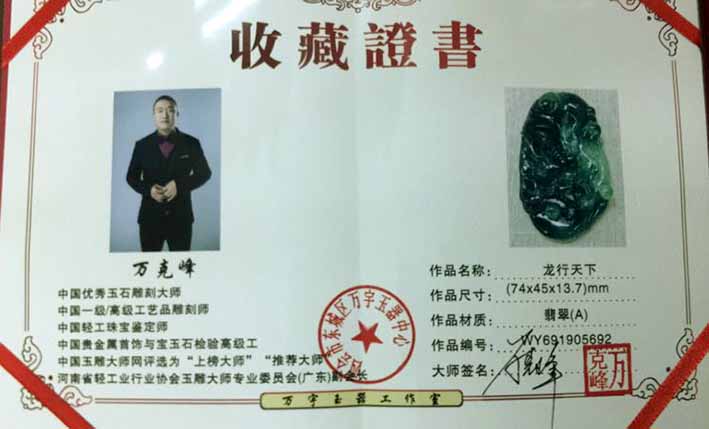 收藏證書
万克峰
中国优秀玉石雕刻大师
中国一级/高级工艺品雕刻师
中国轻工珠宝鉴定师
中国贵金属首饰与宝玉石检验高级工
中国玉雕大师网评选为“上榜大师”“推荐大师”
河南省轻工业行业协会玉雕大师专业委员会(广东)副会长
作品名称： 龙行天下
作品尺寸： (74x45x13.7)mm
作品材质： 翡翠(A)
作品编号： WY691905692
大师签名：
万克峰
市东城区万字玉器中心
万字玉器工作室